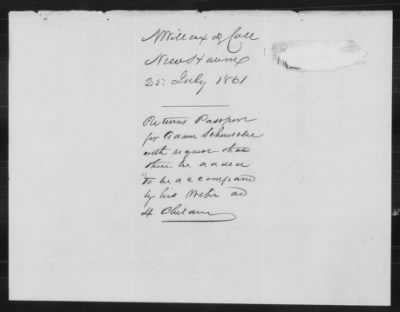 N Willcox & Coll
New Haven
25: July 1861
Returns Passport
for Adam
with request that
there be added
to be accompanied
by his Wife and
4 Children